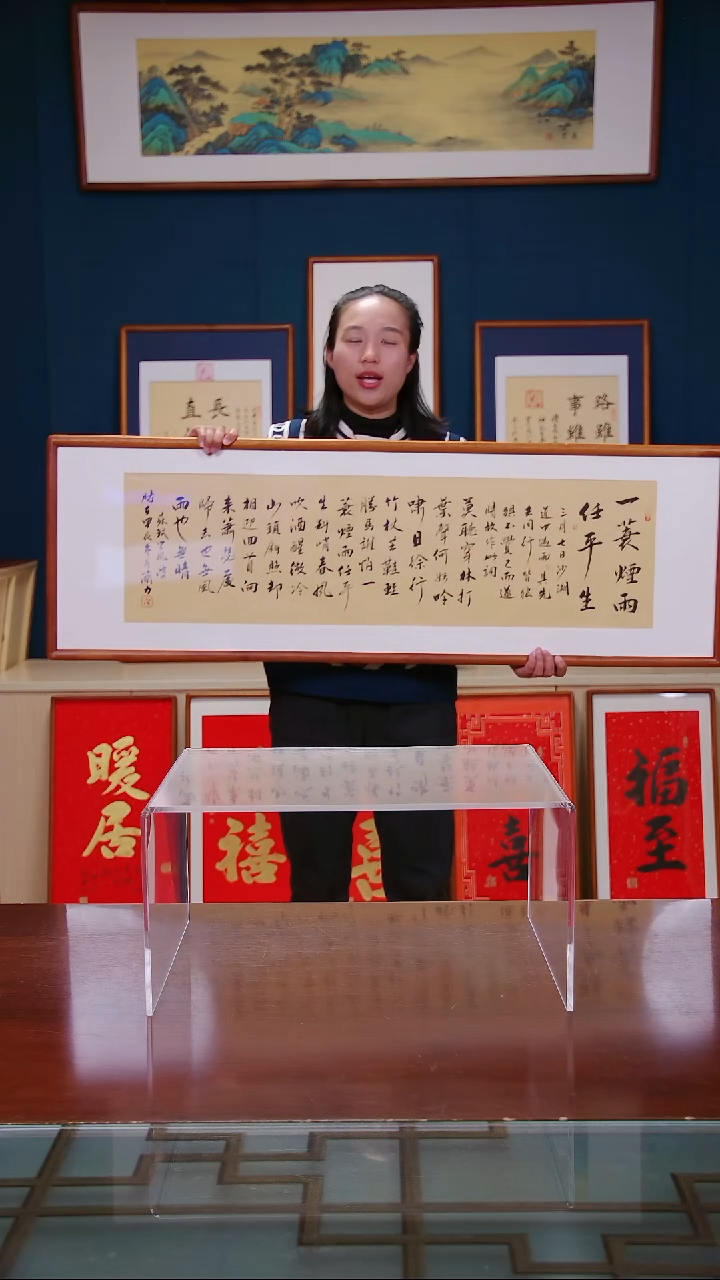 長
直
路雖
事雖
一蓑煙雨
任平生
三月七日沙湖
道中遇雨具先
去同行皆狼
狽不覺已而遂
晴故作此詞
莫聽穿林打
葉聲何妨吟
嘯且徐行
竹杖芒鞋輕
勝馬誰怕一
蓑煙雨任平
生料峭春風
吹酒醒微冷
山頭斜照却
相迎回首向
來蕭瑟處
歸去也無風
雨也無晴
蘇軾定風波
暖居
禧
喜
喜
福至